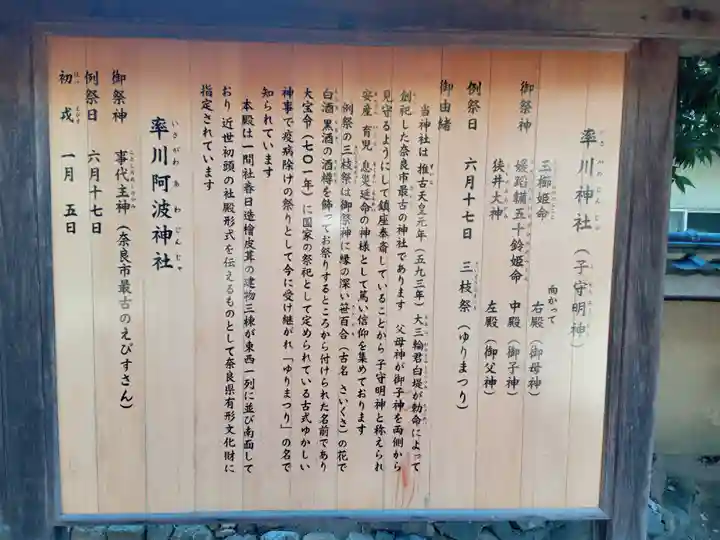 率川神社（子守明神）
向かって
御祭神　三櫛姫命　右殿（御母神）
媛蹈韛五十鈴姫命　中殿（御子神）
狭井大神　左殿（御父神）
例祭日　六月十七日　三枝祭（ゆりまつり）
御由緒
当神社は推古天皇元年（五九三年）大三輪君白堤が勅命によって
創祀した奈良市最古の神社であります　父母神が御子神を両側から
見守るようにして鎮座奉斎していることから子守明神と称えられ
安産　育児　息災延命の神様として篤い信仰を集めております
例祭の三枝祭は御祭神に縁の深い笹百合（古名　さいくさ）の花で
白酒　黒酒の酒罇を飾ってお祭りするところから付けられた名前であり
大宝令（七〇一年）に国家の祭祀として定められている古式ゆかしい
神事で疫病除けの祭りとして今に受け継がれ「ゆりまつり」の名で
知られています
本殿は一間社春日造檜皮葺の建物三棟が東西一列に並び南面して
おり　近世初頭の社殿形式を伝えるものとして奈良県有形文化財に
指定されています
率川阿波神社
いさがわあわじんじゃ
御祭神　事代主神（奈良市最古のえびすさん）
例祭日　六月十七日
初戎　一月　五日